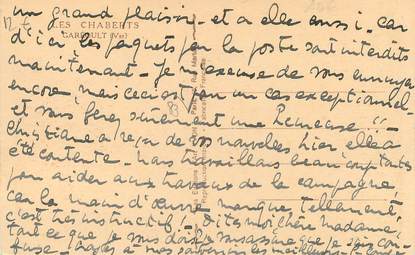 un grand plaisir - et à elle aussi - car
LES CHABERTS
GARÉOULT (Var)
d'ici les paquets par la poste sont interdits
maintenant - Je m'excuse de vous ennuyer
encore, mais ceci est pour un cas exceptionnel -
et vous ferez sûrement une heureuse !! -
Christiane a reçu de vos nouvelles hier, elle a
été contente - nous travaillons beaucoup toutes
pour aider aux travaux de la campagne,
car la main d'œuvre manque tellement,
c'est très instructif - Dites moi chère madame,
tout ce que je vous dois, je vous assure que je suis con-
fuse - à mes souvenirs les meilleurs